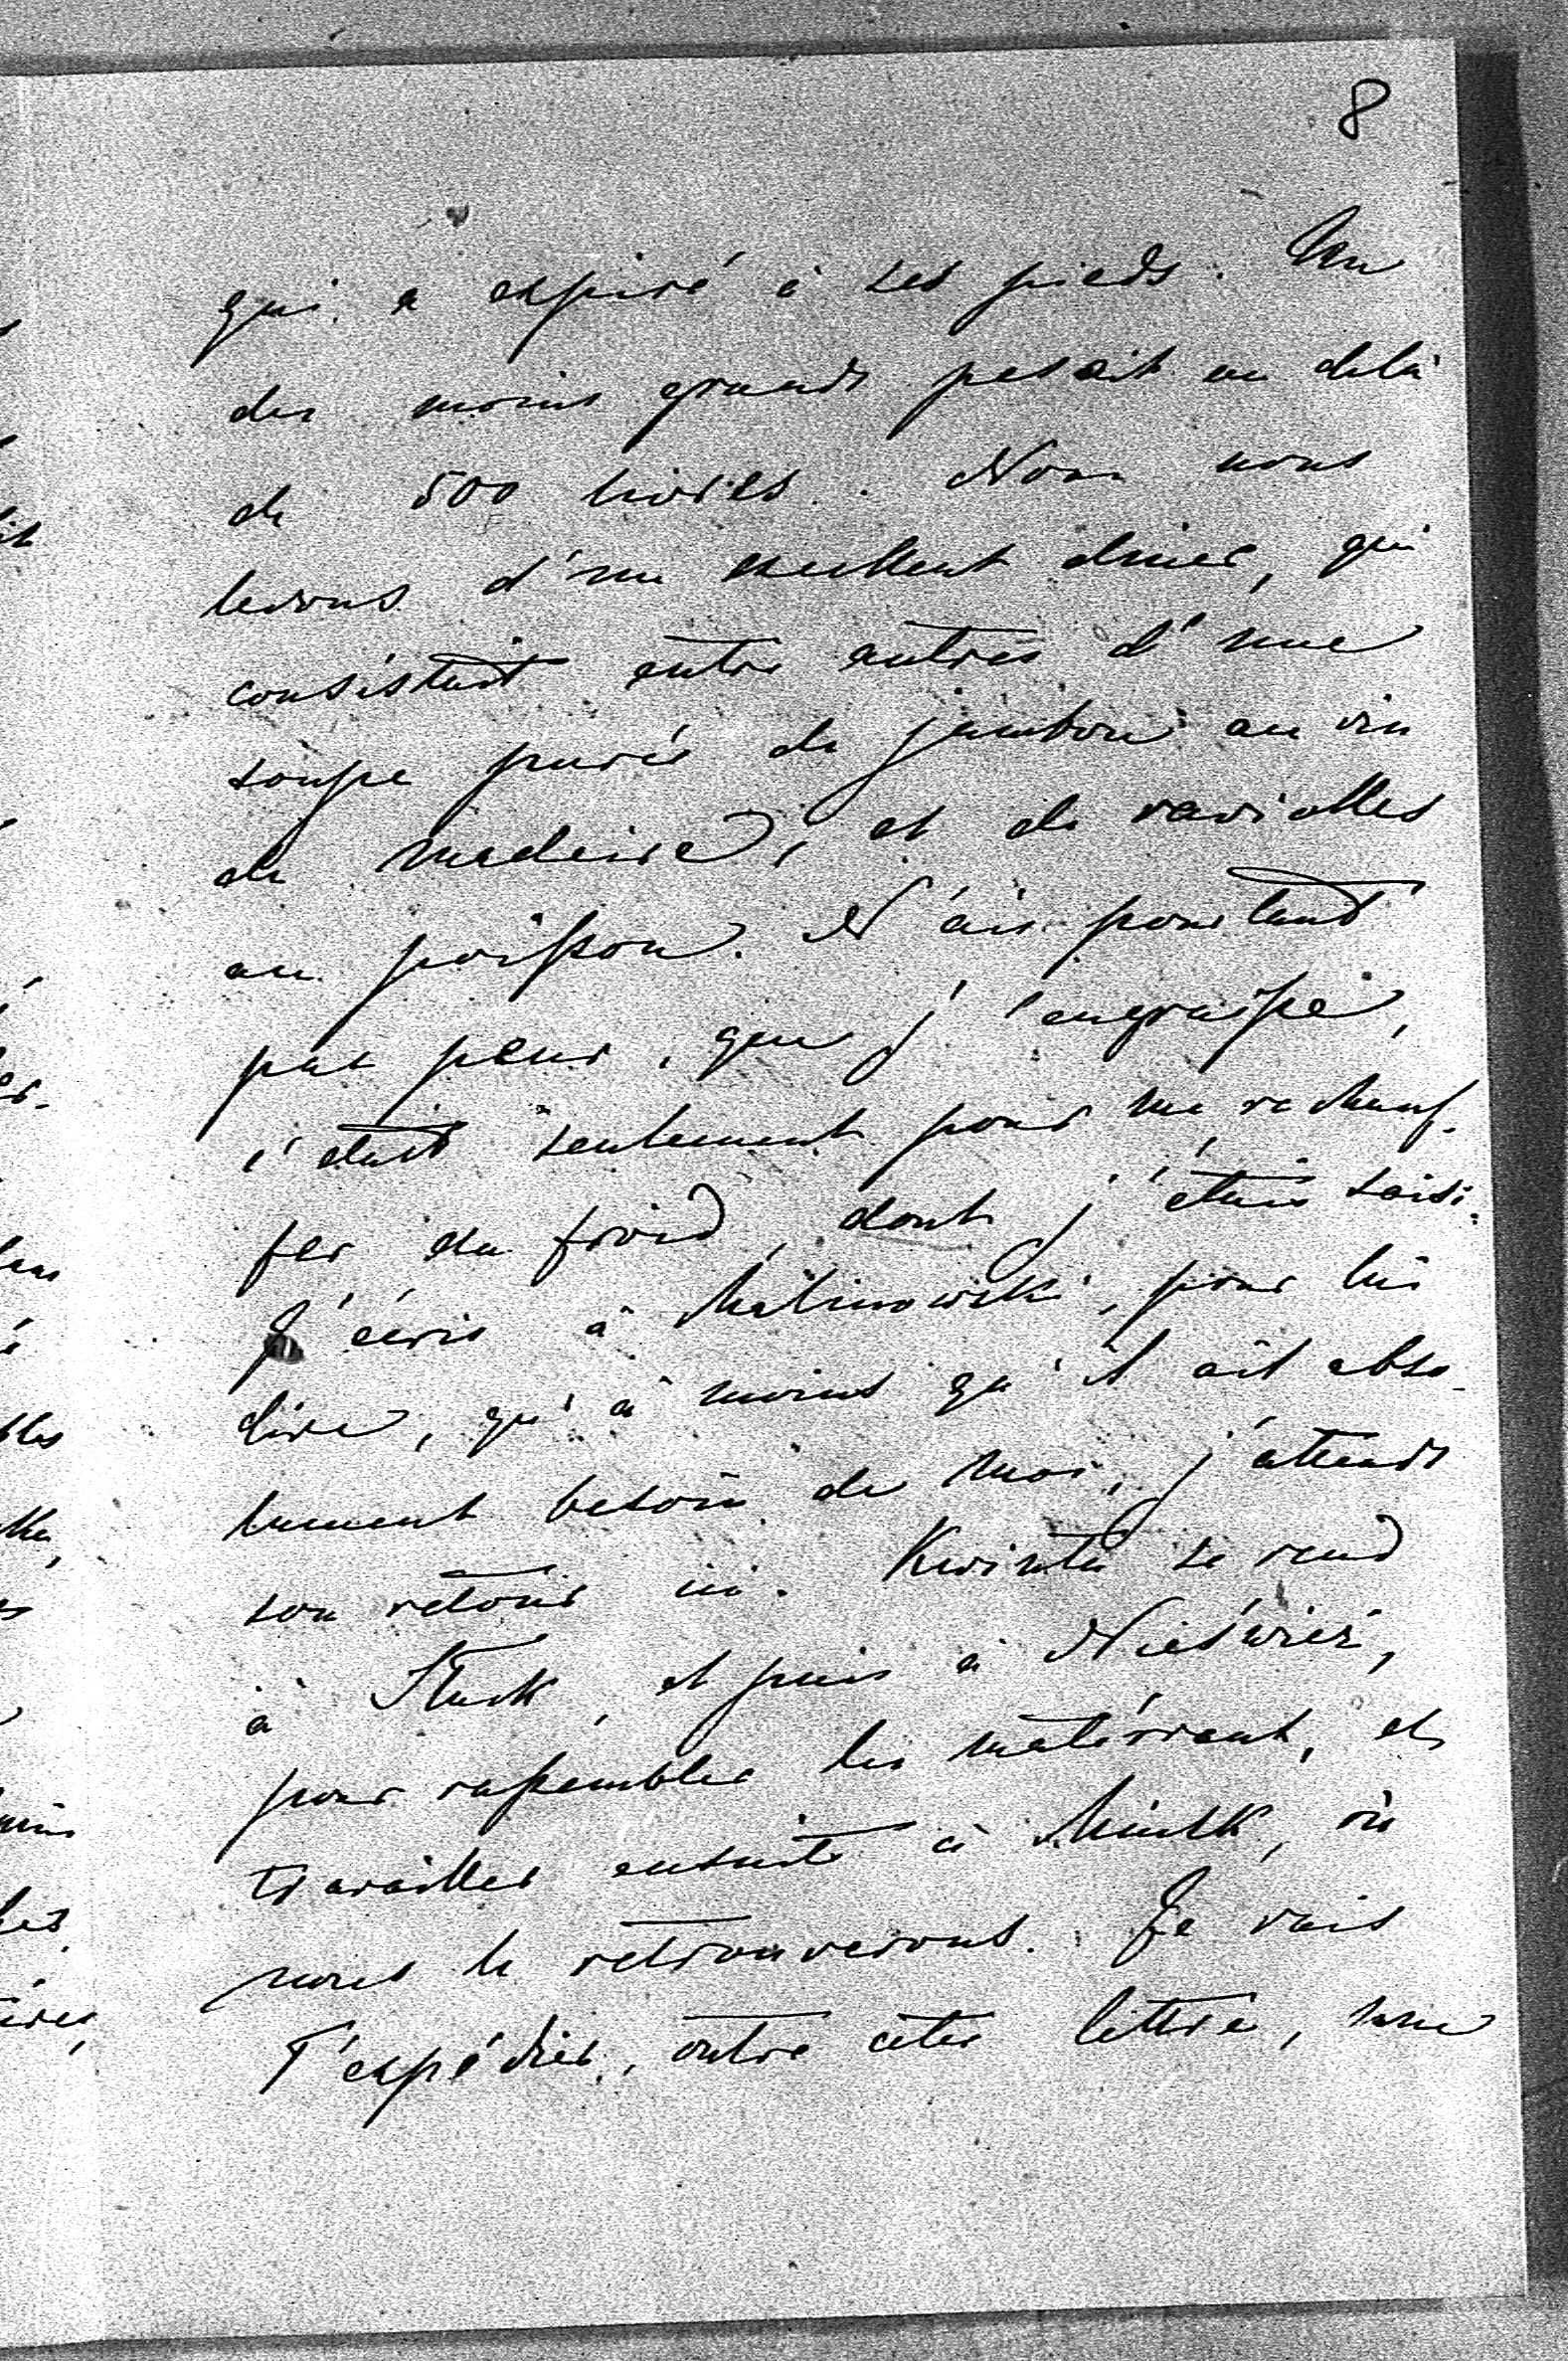 8
qui a expiré à ses pieds. Un
des moins grands pesait au delà
de 500 livres. Nous nous
levons d'un excellent diner, qui
consistait entre autres d'une
soupe purée de jambon au vin
de madeire, et de raviolles
au poisson. N'ais pourtant
pas peur, que j'engraisse,
c'était seulement pour me rechauf-
fer du froid, dont j'étais saisi.
J'écris à Malinowski, pour lui
dire, qu'à moins qu'il ait abso-
lument besoin de moi, j'attends
son retour ici. Kwinta se rend
à Sluck, et puis à Nieświéz,
pour rassembler les matériaux, et
travailler ensuite à Minsk, où
nous le retrouverons. Je vais
T'expédier, outre cette lettre, une